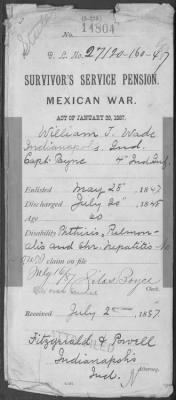 (3-276)
14804
B. L. No. 27120-160-47
SURVIVOR'S SERVICE PENSION.
MEXICAN WAR.
ACT OF JANUARY 29, 1887.
William T. Wade
Indianapolis, Ind.
Capt. Payne 4" Ind. Inf.
Enlisted May 25" 1847
Discharged July 20" 1848
Age 20
Disability Phthisis, Pulmon-
alis and Chr. Hepatitis
claim on file
July 16/
Silas Boyce
Clerk.
Received July 2 1887
Fitzgerald & Powell
Indianapolis
Ind.
Attorney.
N